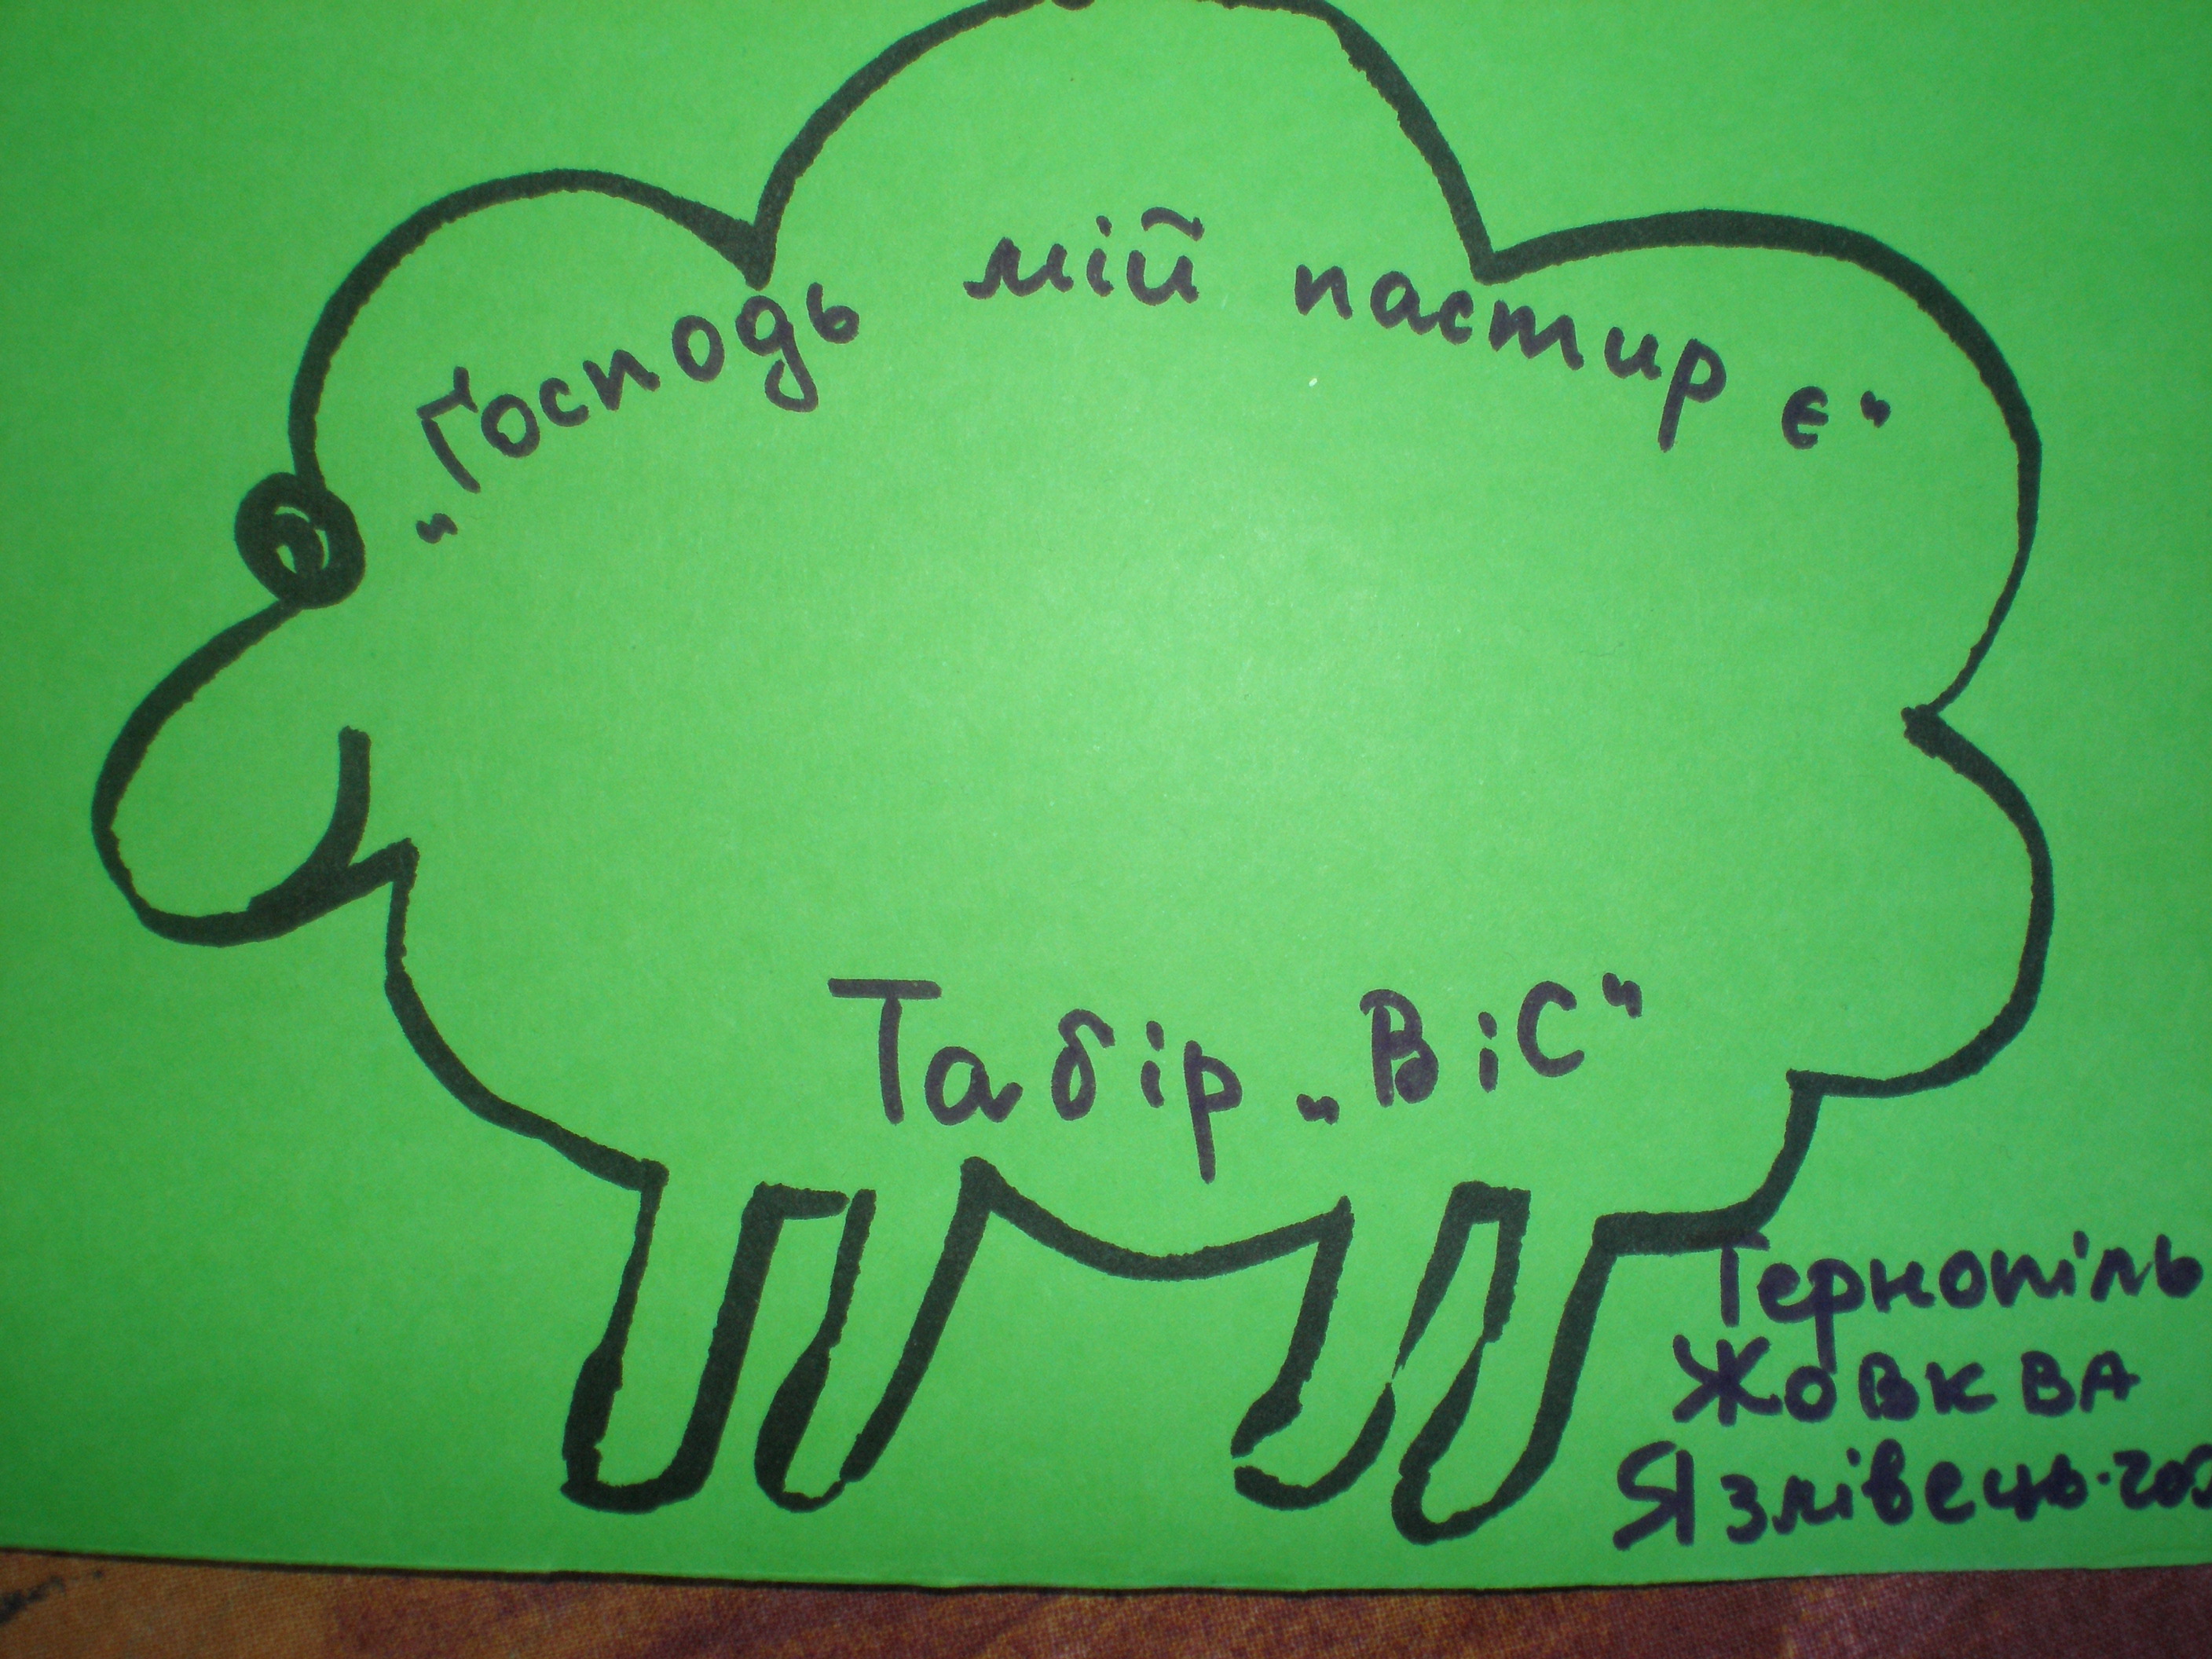 „Господь мій пастир є"
Табір „ВіС"
Тернопіль
Жовква
Язлівець